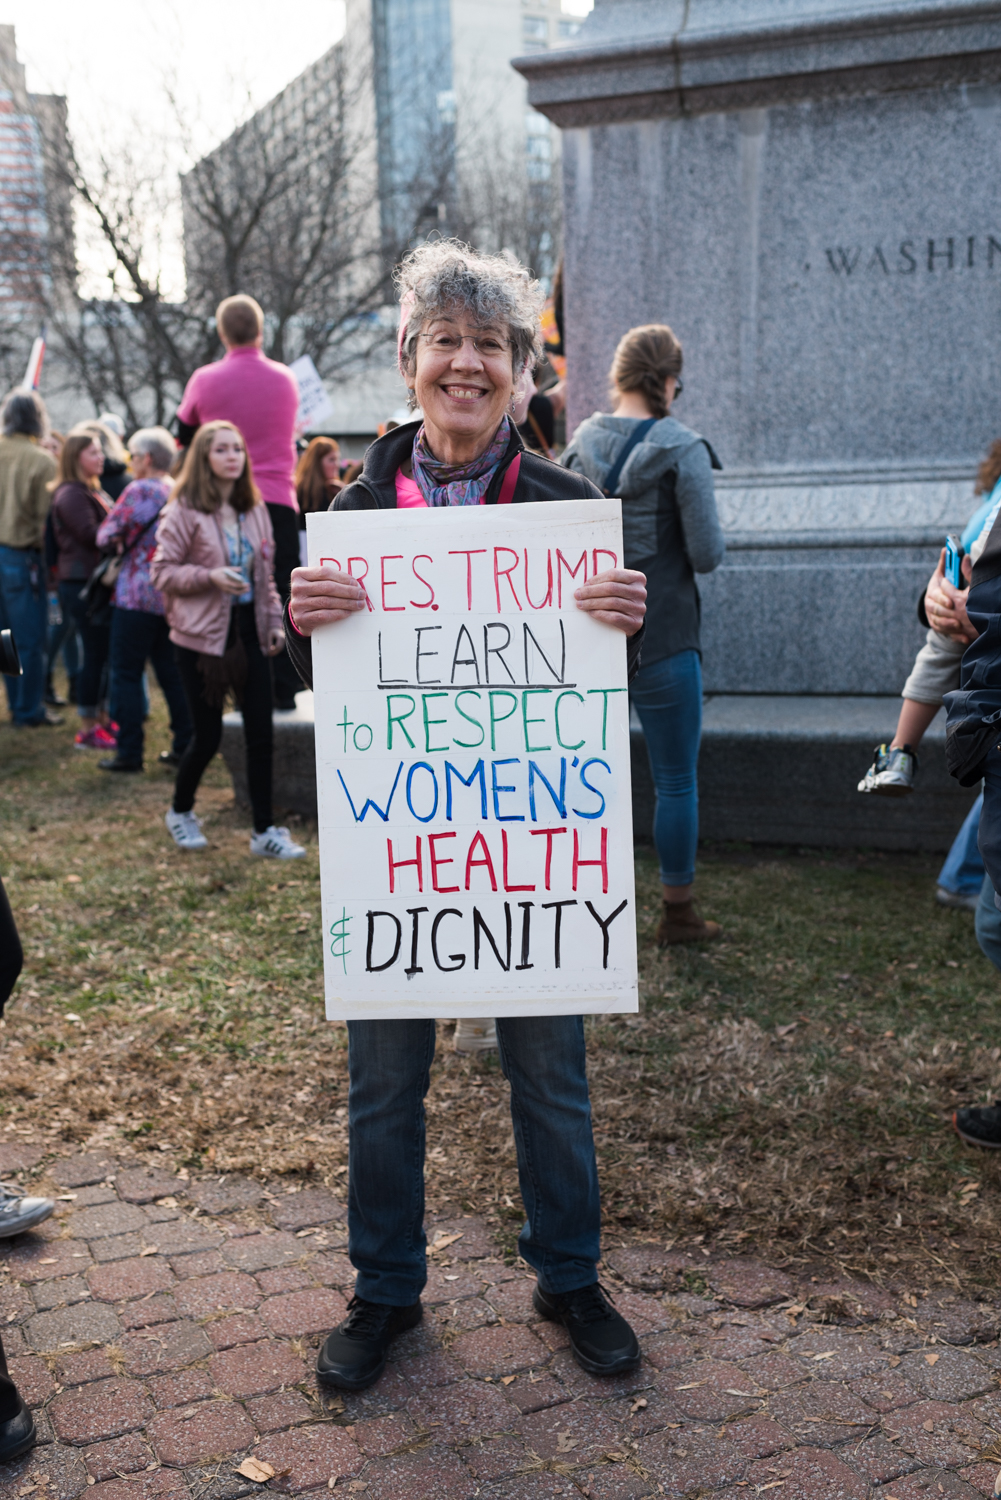 PRES. TRUMP
LEARN
to RESPECT
WOMEN'S
HEALTH
& DIGNITY
WASHIN